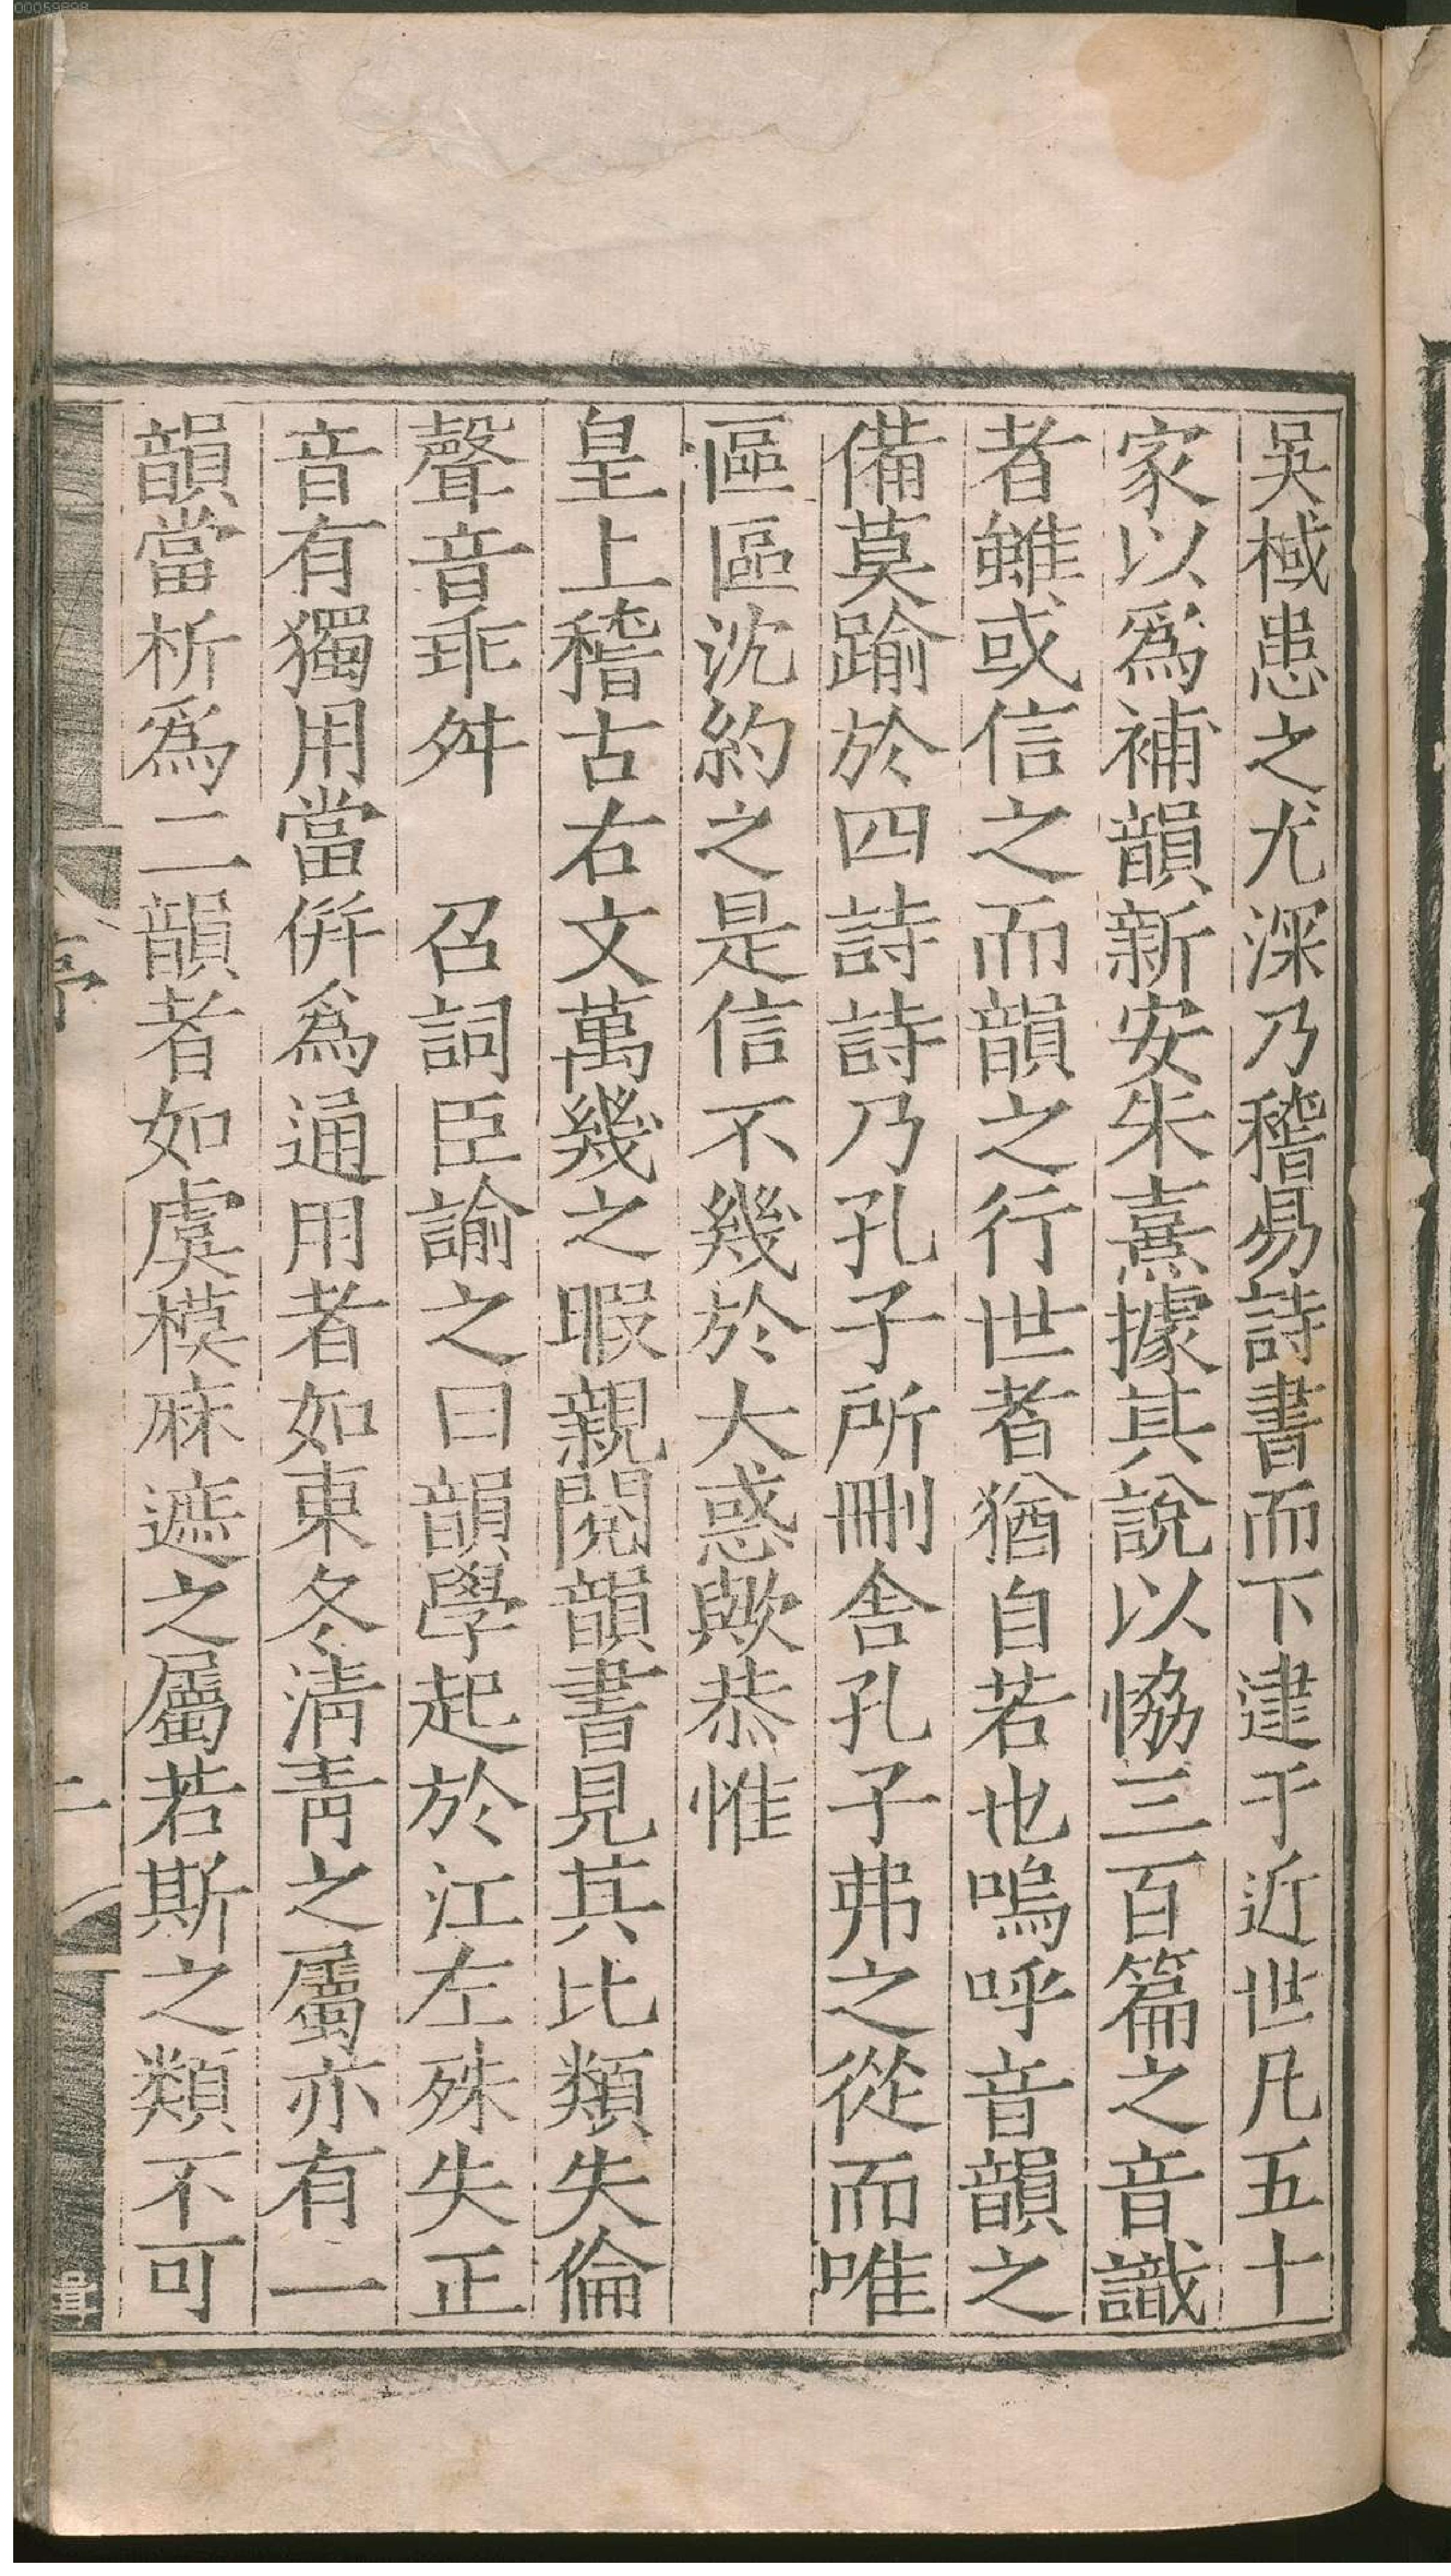 吳棫患之尤深乃稽易詩書而下逮于近世凡五十
家以爲補韻新安朱熹據其說以恊三百篇之音識
者雖或信之而韻之行世者猶自若也嗚呼音韻之
備莫踰於四詩詩乃孔子所刪舍孔子弗之從而唯
區區沈約之是信不幾於大惑歟恭惟
皇上稽古右文萬幾之暇親閱韻書見其比類失倫
聲音乖舛　召詞臣諭之曰韻學起於江左殊失正
音有獨用當併爲通用者如東冬淸靑之屬亦有一
韻當析爲二韻者如虞模麻遮之屬若斯之類不可
00059898